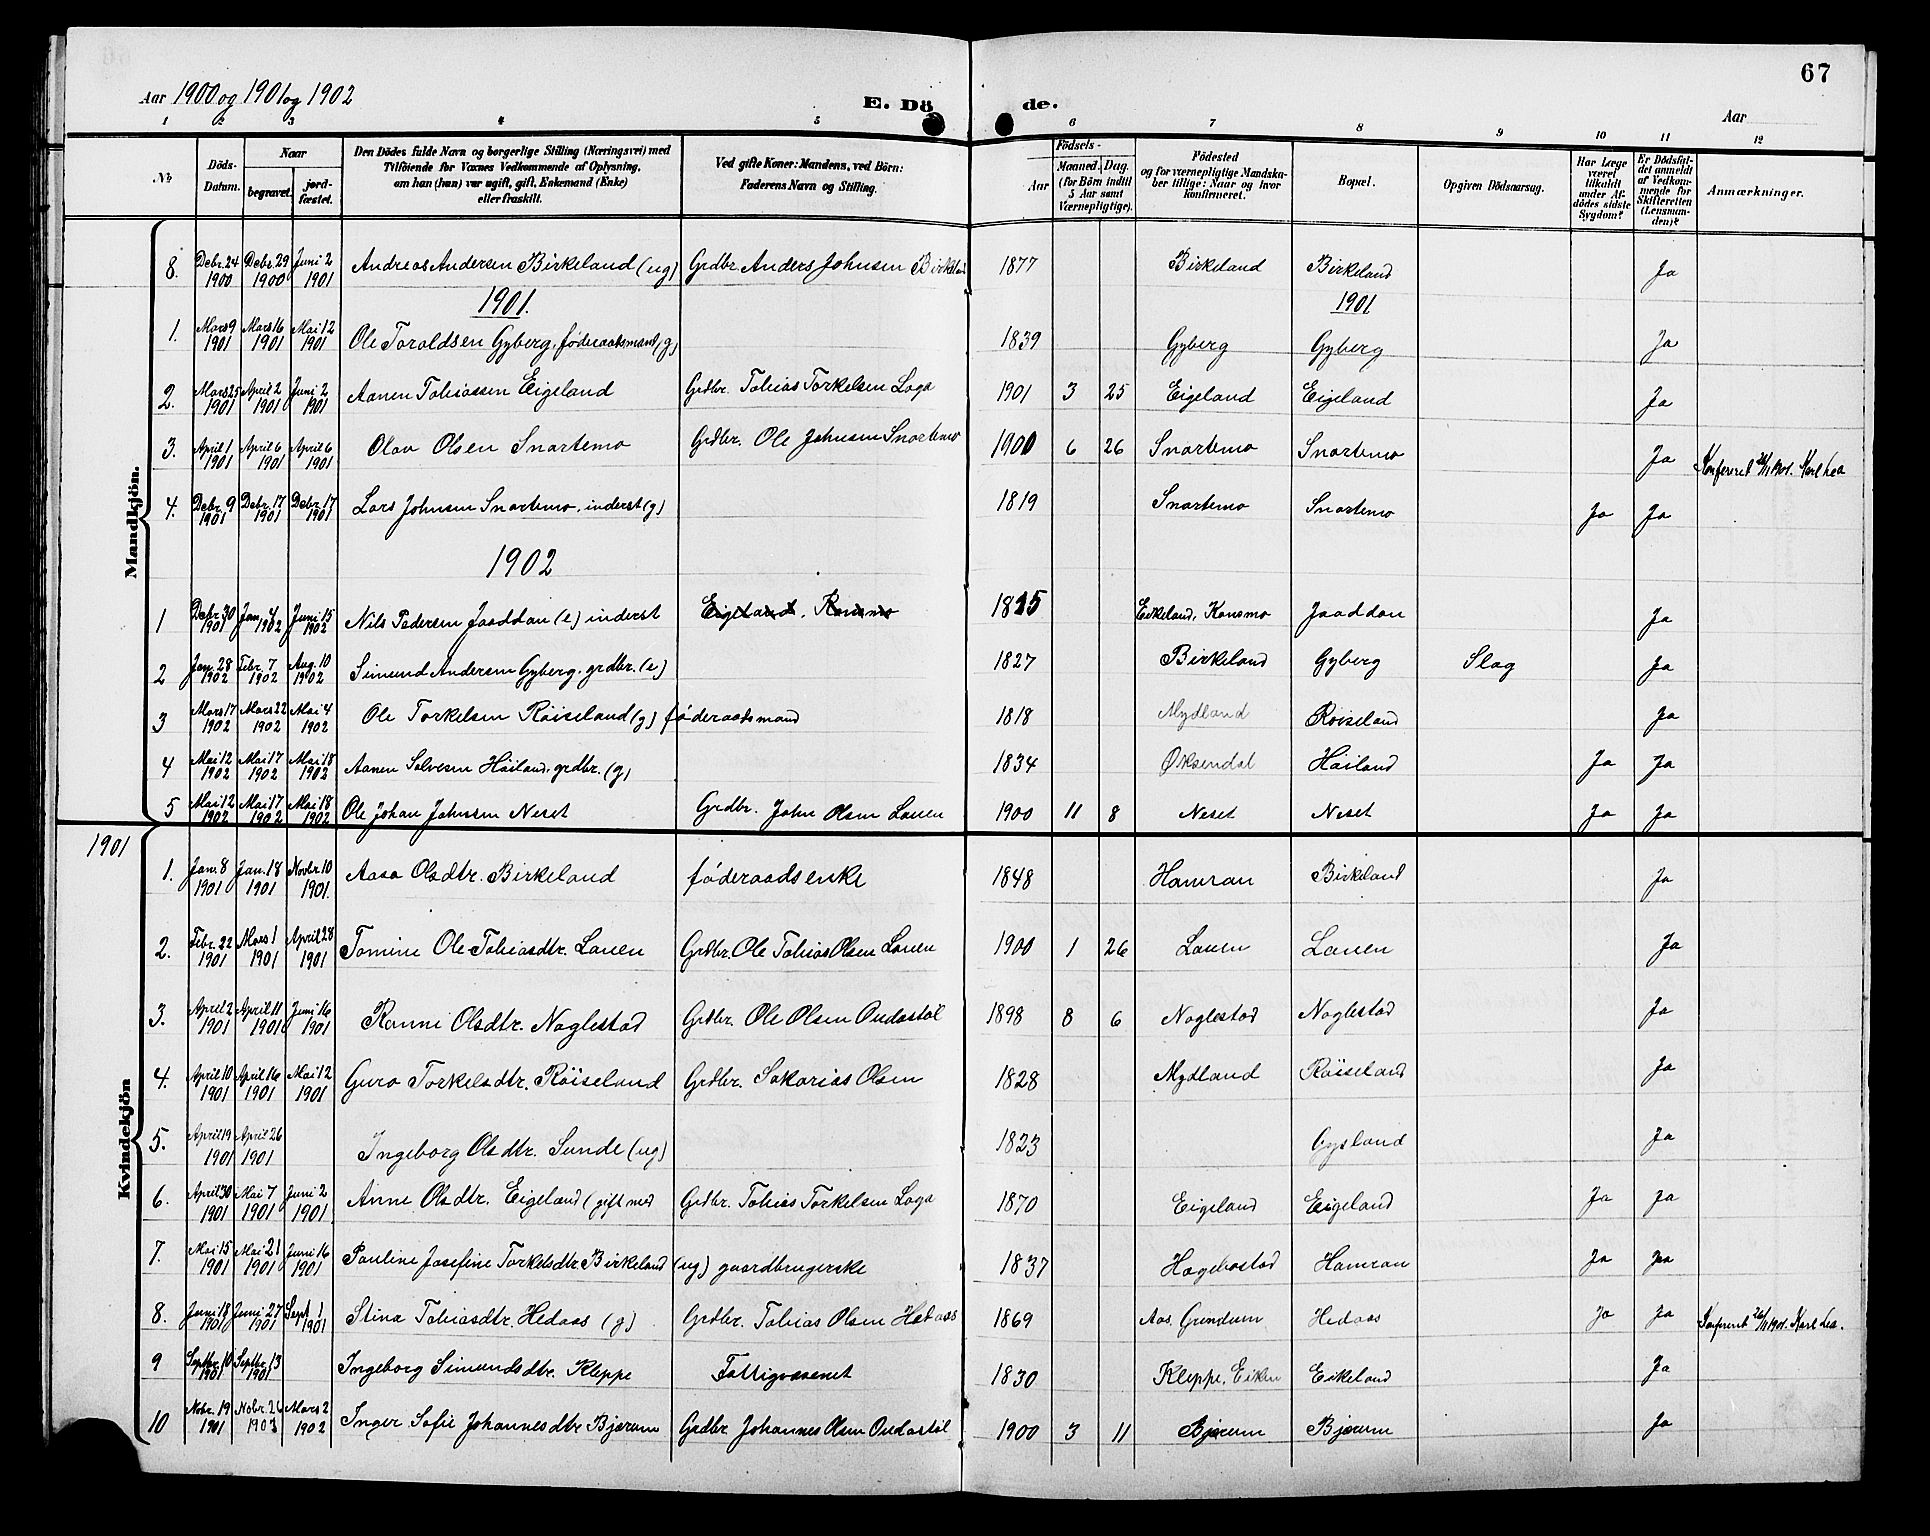 67
Aar 1900 og 1901 og 1902
E. Dö de.
Aar
1 2 3 4 5 6 7 8 9 10 11 12
№
Döds-Datum.
Naar
begravet.
jord-fæstet.
Den Dödes fulde Navn og borgerlige Stilling (Næringsvei) med
Tilföiende for Voxnes Vedkommende af Oplysning,
om han (hun) var ugift, gift, Enkemand (Enke)
eller fraskilt.
Ved gifte Koner: Mandens, ved Börn:
Faderens Navn og Stilling.
Födsels-
Aar
Maaned. Dag.
(for Börn indtil
5 Aar samt
Værnepligtige).
Födested
og for værnepligtige Mandska-
ber tillige: Naar og hvor
konfirmeret.
Bopæl.
Opgiven Dödsaarsag.
Har Læge
været
tilkaldt
under Af-
dödes sidste
Sygdom?
Er Dödsfal-
det anmeldt
af Vedkom-
mende for
Skifteretten
(Lensman-
den)?
Anmærkninger.
Mandkjön.
8. Debr. 24 1900 Debr. 29 1900 Juni 2 1901 Andreas Andersen Birkeland (ug) Grdbr. Anders Johnsen Birkeland 1877 Birkeland Birkeland Ja
1901. 1901
1. Mars 9 1901 Mars 16 1901 Mai 12 1901 Ole Toroldsen Gyberg, føderaadsmand (g) 1839 Gyberg Gyberg Ja
2. Mars 25 1901 April 2 1901 Juni 2 1901 Aanen Tobiassen Eigeland Grdbr. Tobias Torkelsen Loga 1901 3 25 Eigeland Eigeland Ja
3. April 1 1901 April 6 1901 April 6 1901 Olav Olsen Snartemo Grdbr. Ole Johnsen Snartemo 1900 6 26 Snartemo Snartemo Ja Konfereret 1901. Karl Lea
4. Debr. 9 1901 Debr. 17 1901 Debr. 17 1901 Lars Johnsen Snartemo, inderst (g) 1819 Snartemo Snartemo Ja Ja
1902
1 Debr. 30 1901 Jan. 4 1902 Juni 15 1902 Nils Pedersen Jaaddan (e) inderst Eigeland, Konsmo 1815 Eikeland, Konsmo Jaaddan Ja
2 Jan. 28 1902 Febr. 7 1902 Aug. 10 1902 Simund Andersen Gyberg, grdbr. (e) 1827 Birkeland Gyberg Slag Ja
3 Mars 17 1902 Mars 22 1902 Mai 4 1902 Ole Torkelsen Röiseland (g) føderaadsmand 1818 Mydland Röiseland Ja
4 Mai 12 1902 Mai 17 1902 Mai 18 1902 Aanen Salvesen Häiland, grdbr. (g) 1834 Øksendal Häiland Ja Ja
5 Mai 12 1902 Mai 17 1902 Mai 18 1902 Ole Johan Johnsen Neset Grdbr. John Olsen Lauen 1900 11 8 Neset Neset Ja Ja
1901
Kvindekjön
1. Jan. 8 1901 Jan. 18 1901 Novbr. 10 1901. Aasa Olsdtr. Birkeland føderaadsenke 1848 Hamran Birkeland Ja
2. Febr. 22 1901 Mars 1 1901 April 28 1901 Tomine Ole Tobiasdtr. Lauen Grdbr. Ole Tobias Olsen Lauen 1900 1 26 Lauen Lauen Ja
3. April 2 1901 April 11 1901 Juni 16 1901 Ranni Olsdtr. Naglestad Grdbr. Ole Olsen Oudastöl 1898 8 6 Naglestad Naglestad Ja
4. April 10 1901 April 16 1901 Mai 12 1901 Guro Torkelsdtr. Röiseland Grdbr. Sakarias Olsen 1828 Mydland Röiseland Ja
5. April 19 1901 April 26 1901 Ingeborg Olsdtr. Sunde (ug) 1823 Gysland Ja
6. April 30 1901 Mai 7 1901 Juni 2 1901 Anne Olsdtr. Eigeland (gift med Grdbr. Tobias Torkelsen Loga 1870 Eigeland Eigeland Ja Ja
7. Mai 15 1901 Mai 21 1901 Juni 16 1901 Pauline Josefine Torkelsdtr Birkeland (ug) gaardbrugerske 1837 Hægebostad Hamran Ja Ja
8. Juni 18 1901 Juni 27 1901 Sept. 1 1901 Stina Tobiasdtr. Hedaas (g) Grdbr. Tobias Olsen Hedaas 1869 Aas, Grindum Hedaas Ja Ja Konfereret 1901. Karl Lea.
9 Septbr. 10 1901 Septbr. 13 1901 Ingeborg Simundsdtr. Kleppe Fattigvæsenet 1830 Kleppe, Eiken Eikeland Ja
10 Nobr. 19 1901 Nobr. 26 1901 Mars 2 1902 Inger Sofie Johannesdtr Bjærum Grdbr Johannes Olsen Oudastöl 1900 3 11 Bjærum Bjærum Ja